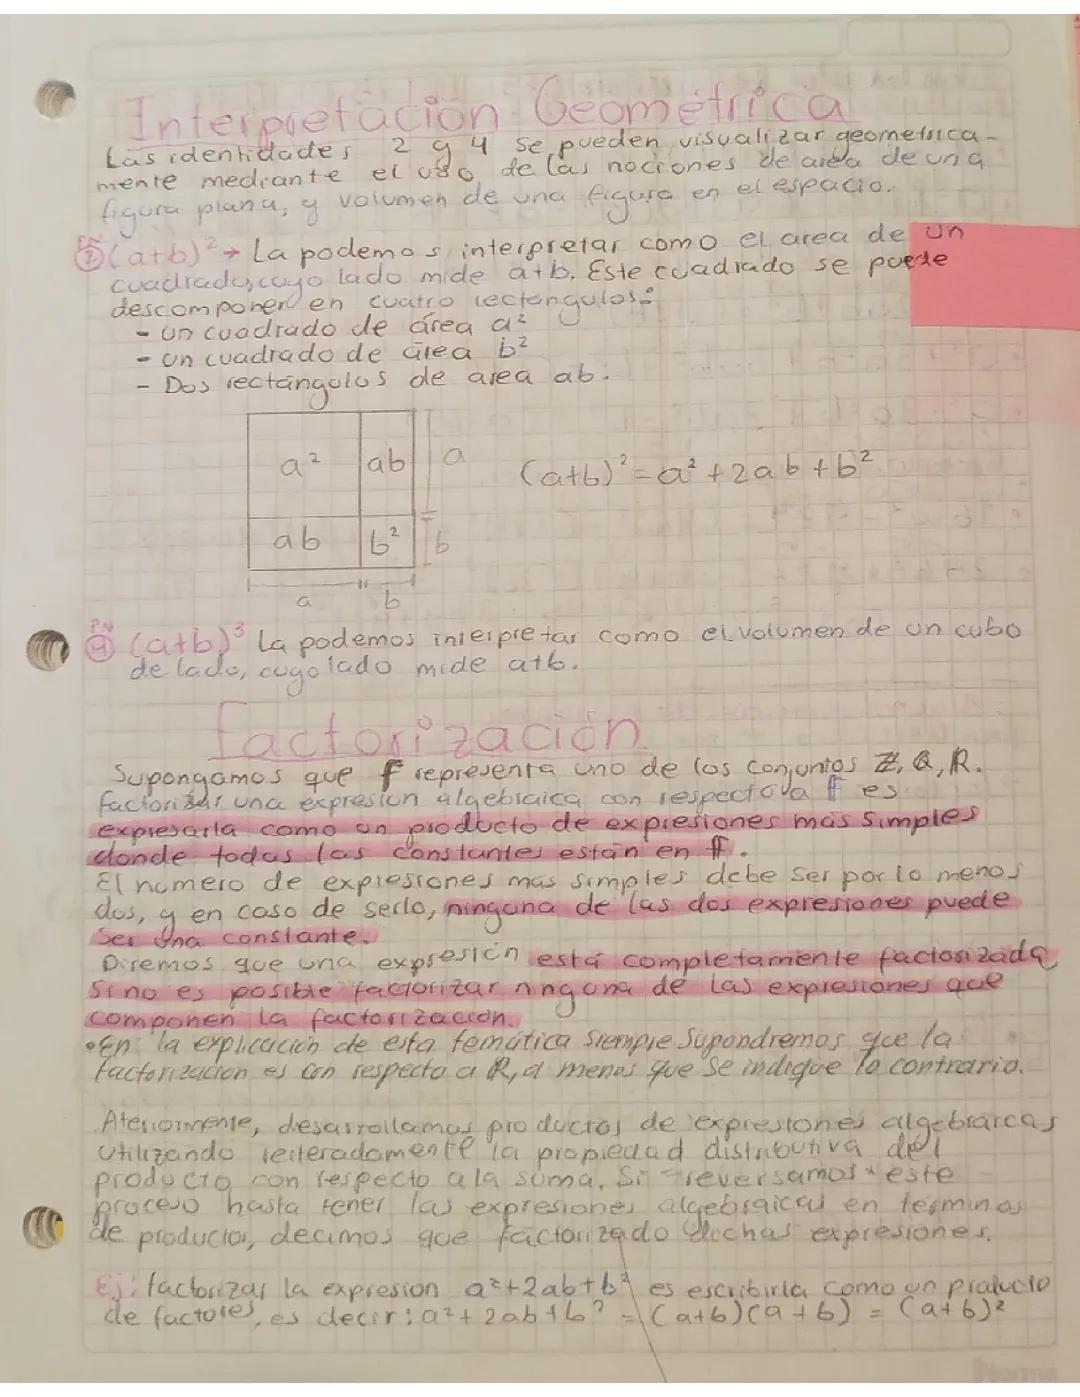 Interpretación Geométrica
Las identidades 2 y 4 se pueden visualizar geometrica-
mente mediante el uso de las nociones de area de una
figura plana, y volumen de una figura en el espacio.
PN
② (a+b)² → La podemos interpretar como el area de un
cuadrado, cuyo lado mide a+b. Este cuadrado se puede
descomponer en cuatro rectangulos:
- un cuadrado de área a²
- un cuadrado de área b²
- Dos rectángulos de area ab.
a² ab a
(a+b)² = a² + 2ab + b²
ab b² b
a b
PN
④ (a+b)³ La podemos interpretar como el volumen de un cubo
de lado, cuyo lado mide a+b.
Factorización
Supongamos que F representa uno de los conjuntos Z, Q, R.
factorizar una expresion algebraica con respecto a F es
expresarla como un producto de expresiones mas simples
donde todas las constantes están en F.
El numero de expresiones mas simples debe ser por lo menos
dos, y en caso de serlo, ninguna de las dos expresiones puede
ser una constante.
Diremos que una expresión está completamente factorizada
si no es posible factorizar ninguna de las expresiones que
componen la factorización.
• En la explicación de esta temática siempre supondremos que la
factorización es con respecto a R, a menos que se indique lo contrario.
Ateriormente, desarrollamos productos de expresiones algebraicas
utilizando reiteradamente la propiedad distributiva del
producto con respecto a la suma. Si "reversamos" este
proceso hasta tener las expresiones algebraicas en terminos
de productos, decimos que factorizado dichas expresiones.
Ej: factorizar la expresion a²+2ab+b² es escribirla como un producto
de factores, es decir: a²+2ab+b² = (a+b)(a+b) = (a+b)²
Norma